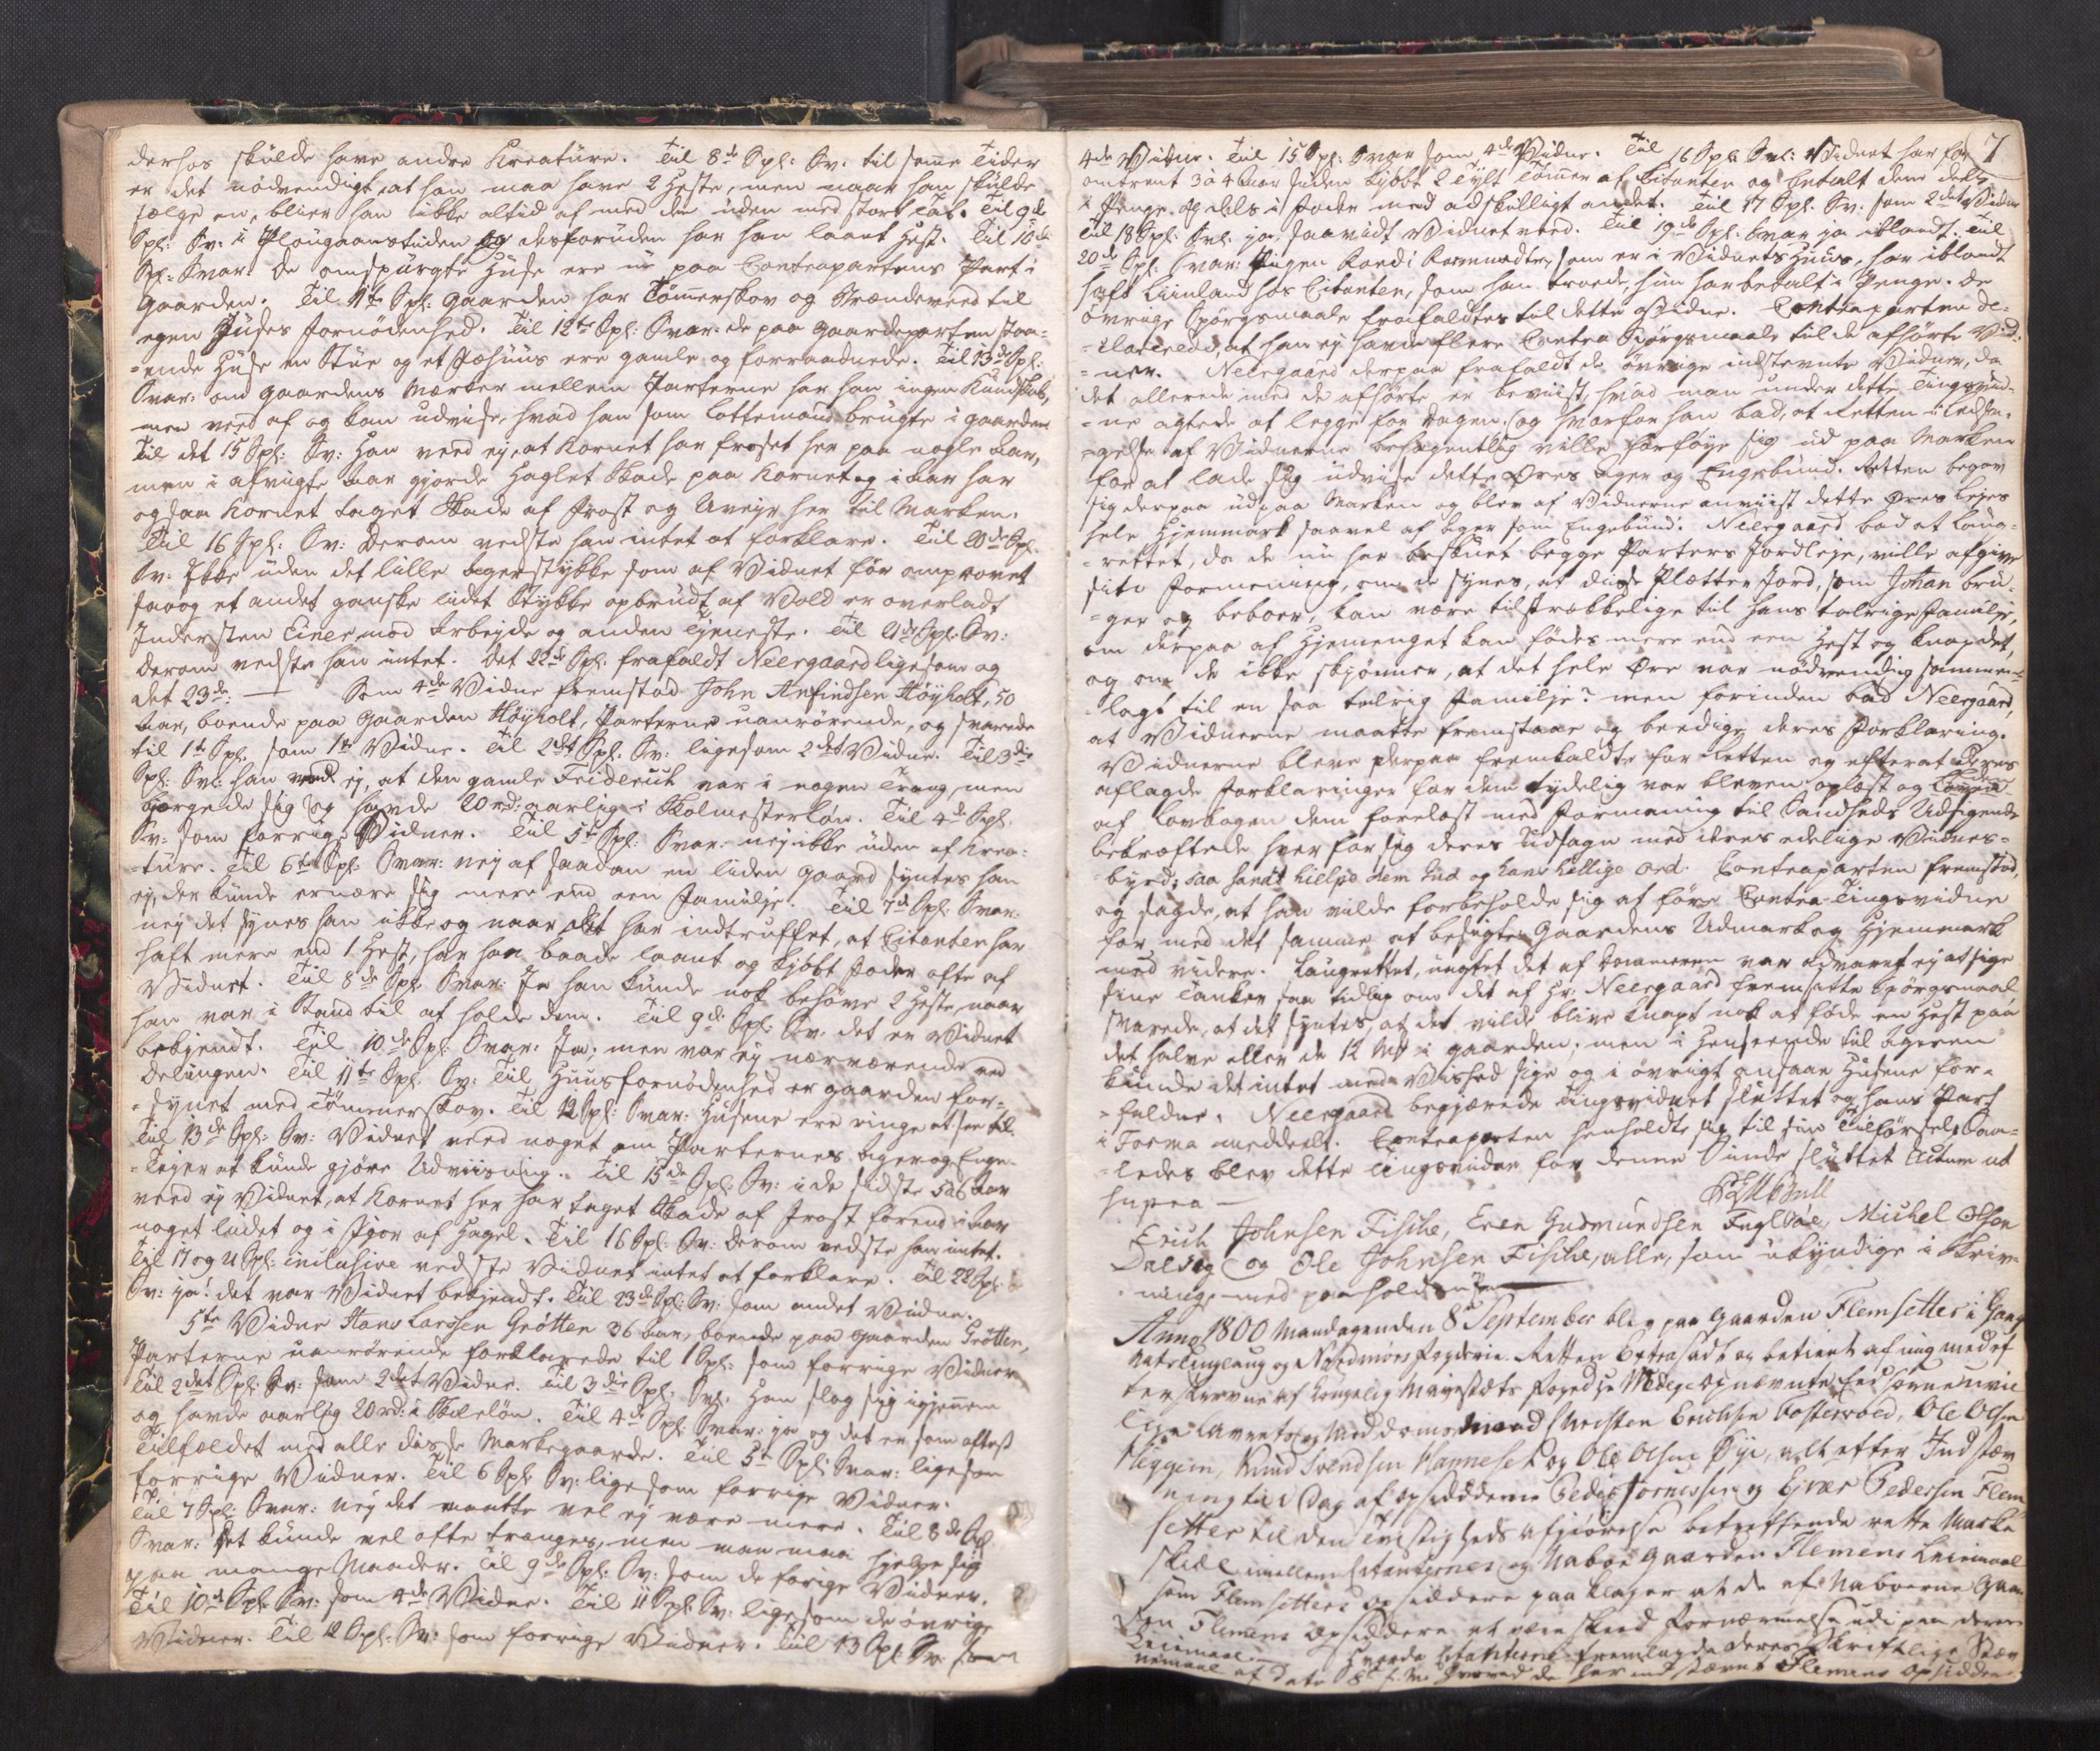 derhos skulde have andre Kreature. Til 8de Spl: Sv: til somme Tider
er det nödvendigt, at han maa have 2 Heste, men naar han skulde
sælge en, bliver han ikke altid af med den uden med stort Tab. Til 9de
Spl: Sv: i Plougaanstiden og desforuden har han laant Hest. Til 10de
Spl: Svar: De omspurgte Huse ere nu paa Contrapartens Part i
Gaarden. Til 11te Spl: Gaarden har Tömmerskov og Brændeveed til
egen Huses Fornödenhed. Til 12te Spl: Svar: de paa Gaardeparten staa-
=ende Huse en Stue og et Fæhuus ere gamle og forraadnede. Til 13de Spl:
Svar: om Gaardens Mærker mellem Parterne har han ingen Kundskab,
men veed af og kan udvise, hvad han som Lottemand brugte i Gaarden
Til det 15 Spl: Sv: Han veed ej, at Kornet har frosset her paa nogle Aar,
men i afvigte Aar gjorde Haglet Skade paa Kornet og i Aar har
ogsaa Kornet taget Skade af Frost og Uvejr her til Marken.
Til 16 Spl: Sv: Derom vedste han intet at forklare. Til 20de Spl.
Sv: Ikke uden det lille Agerstykke som af Vidnet för omprovet
saa og et andet ganske lidet Stykke opbrudt af Vold er overladt
Indersten Einer mod Arbejde og anden Tjeneste. Til 21de Spl: Sv:
derom vedste han intet. Det 22de Spl: frafaldt Neergaard ligesom og
det 23de. — Som 4de Vidne fremstod John Anfindsen Höyholt, 50
Aar, boende paa Gaarden Höyholt, Parterne uanrörende, og svarede
til 1te Spl. som 1te Vidne. Til 2det Spl. Sv: ligesom 2det Vidne. Til 3die
Spl: Sv: han veed ej, at den gamle Friderich var i nogen Trang, men
biergede sig og havde 20 rd: aarlig i Skolmesterlön. Til 4de Spl.
Sv: som forrige Vidner. Til 5te Spl: Svar: nej ikke uden af Krea-
=ture. Til 6te Spl: Svar: nej af saadan en liden Gaard syntes han
ej, der kunde ernære sig mere end een Familje. Til 7de Spl: Svar:
nej det synes han ikke og naar det har indtruffet, at Citanten har
haft mere end 1 Hest, har han baade laant og kjöbt Foder ofte af
Vidnet. Til 8de Spl. Svar: Ja han kunde nok behöve 2 Heste, naar
han var i Stand til at holde dem. Til 9de Spl: Sv: det er Vidnet
bekjendt. Til 10de Spl: Svar: Ja; men var ej nærværende ved
Delingen. Til 11te Spl. Sv: Til Huusfornödenhed er Gaarden for-
=synet med Tömmerskov. Til 12 Spl: Svar: Husene ere ringe at see til.
Til 13de Spl: Sv: Vidnet veed noget om Parternes Ager og Enge-
=Tejer at kunde gjöre Udviisning. Til 15de Spl: Sv: i de sidste 5 a 6 Aar
veed ej Vidnet, at Kornet her har taget Skade af Frost förend i Aar
noget lidet og i Fjor af Hagel. Til 16 Spl: Sv: Derom vedste han intet.
Til 17 og 21 Spl: inclusive vedste Vidnet intet at forklare. Til 22 Spl:
Sv: ja! det var Vidnet bekjendt. Til 23de Spl: Sv: som andet Vidne.
5te Vidne Hans Larssen Grötten 36 Aar, boende paa Gaarden Grötten,
Parterne uanrörende forklarede til 1 Spl: som forrige Vidner
Til 2det Spl: Sv: som 2det Vidne. Til 3die Spl: Sv: Han slog sig igjennem
og havde aarlig 20 rd: i Skolelön. Til 4de Spl: Svar: ja og det er som oftest
Tilfældet med alle disse Markegaarde. Til 5te Spl: Svar: ligesom
forrige Vidner. Til 6 Spl: Sv: ligesom forrige Vidner.
Til 7 Spl: Svar: nej det maatte vel ej være mere. Til 8de Spl.
Svar: Det kunde vel ofte tranges, men man maa hjelpe sig
paa mange Maader. Til 9de Spl: Sv: som de forige Vidner.
Til 10de Spl: Sv: som 4de Vidne. Til 11 Spl: Sv: ligesom de övrige
Vidner. Til 12 Spl: Sv: som forrige Vidner. Til 13 Spl: Sv: som
7
4de Vidne. Til 15 Spl: Svar som 4de Vidne. Til 16 Spl: Sv: Vidnet har for
omtrent 3 à 4 Aar siden kjöbt 2 Tylt Tömmer af Citanten og betalt dem dels
i Penge og dels i Foder med adskilligt andet. Til 17 Spl. Sv: som 2det Vidne
Til 18 Spl: Sv: ja, saavidt Vidnet veed. Til 19de Spl: Svar ja iblandt. Til
20de Spl: Svar: Pigen Randi Rasmusdtr, som er i Vidnets Huus, har iblandt
haft Liinland hos Citanten, som han troede, hun har betalt i Penge. De
övrige Spörgsmaale frafaldtes til dette Vidne. Contraparten de-
=clarerede, at han ej havde flere Contra Spörgsmaale til de afhörte Vid-
=ner. Neergaard derpaa frafaldt de övrige indstevnte Vidner, da
det allerede med de afhörte er beviist, hvad man under dette Tingsvid-
=ne agtede at legge for Dagen og hvorfor han bad, at Retten i Ledsa-
=gelse af Vidnerne behagentlig ville forföye sig ud paa Marken
for at lade sig udvise dette Øres Ager og Engebund. Retten begav
sig derpaa ud paa Marken og blev af Vidnerne anviist dette Øres Lejes
hele Hjemmark saavel af Ager som Engebund. Neergaard bad at Laug-
=rettet, da de nu har beskuet begge Parters Jordleje, ville afgive
sin Formening, om de synes, at disse Pletter Jord, som Johan bru-
=ger og beboer, kan være tilstrækkelige til hans talrige Familje,
om derpaa af Hjemenget kan födes mere end een Hest og knap det,
og om de ikke skjönner, at det hele Øre var nödvendig sammen-
=lagt til en saa talrig Familje? men forinden bad Neergaard,
at Vidnerne maatte fremstaae og beedige deres Forklaring.
Vidnerne bleve derpaa fremkaldte for Retten og efterat deres
aflagde Forklaringer for dem tydelig var bleven oplæst og Eeden
af Lovbogen dem forelæst med Formaning til Sandheds Udsigende
bekræftede hver for sig deres Udsagn med deres edelige Vidnes-
=byrd; saa sandt hielpe dem Gud og hans hellige Ord. Contraparten fremstod,
og sagde, at han vilde forbeholde sig at före Contra-Tingsvidne
for med det samme at besigte Gaardens Udmark og Hjemmark
med videre. Laugrettet, uagtet det af Dommeren var advaret ej at sige
sine Tanker saa tidlig om det af Hr: Neergaard fremsatte Spörgsmaal
svarede, at det syntes, at det vilde blive knapt nok at föde en Hest paa
det halve eller de 12 Mkl i Gaarden, men i Henseende til Ageren
kunde det intet med Vished sige og i övrigt ansaae Husene for-
=faldne. Neergaard begjærede Tingsvidnet sluttet og hans Part
i Forma meddeelt. Contraparten henholdte sig til sin Tilförsel. Saa-
=ledes blev dette Tingsvidne for denne Sinde sluttet Actum ut
supra —
Erich Johnsen Fiske, Even Gudmundsen Fuglsöe, Michel Olsen
Dalseg og Ole Johnsen Fiske, alle, som ukyndige i Skriv-
ning, med paaholden Pen
Anno 1800 Mandagen den 8de September blev paa Gaarden Flemsetter i
og Nordmörs Fogderie Retten Extra sadt og betient af mig med ef
ter Skrevne af Kongelig Mayestæts Foged Opnævnte Eed
Lavrettes Meddomsmænd Christen Erichsen, Ole Olsen
, Knud Svendsen og Ole Olsen Öye, alt efter Indstæv
ning til i Dag af Opsidderne Peder og Ejver Pedersen Flem
setter til den Tvistigheds Afgiörelse betreffende rette Marke
skiel imellem Citanterne og Naboe Gaarden Flemens Leiermaal
som Flemsetters Opsiddere paa klager at de af Naboerne Gaar
den Flemens Opsiddere at være skeed Fornærmelse udi paa deres
Leiermaal — Hvorda Citanterne fremlagde deres Skriftlige Stæv
nemaal af Dato hvorved de har indstævnt Flemens Opsiddere